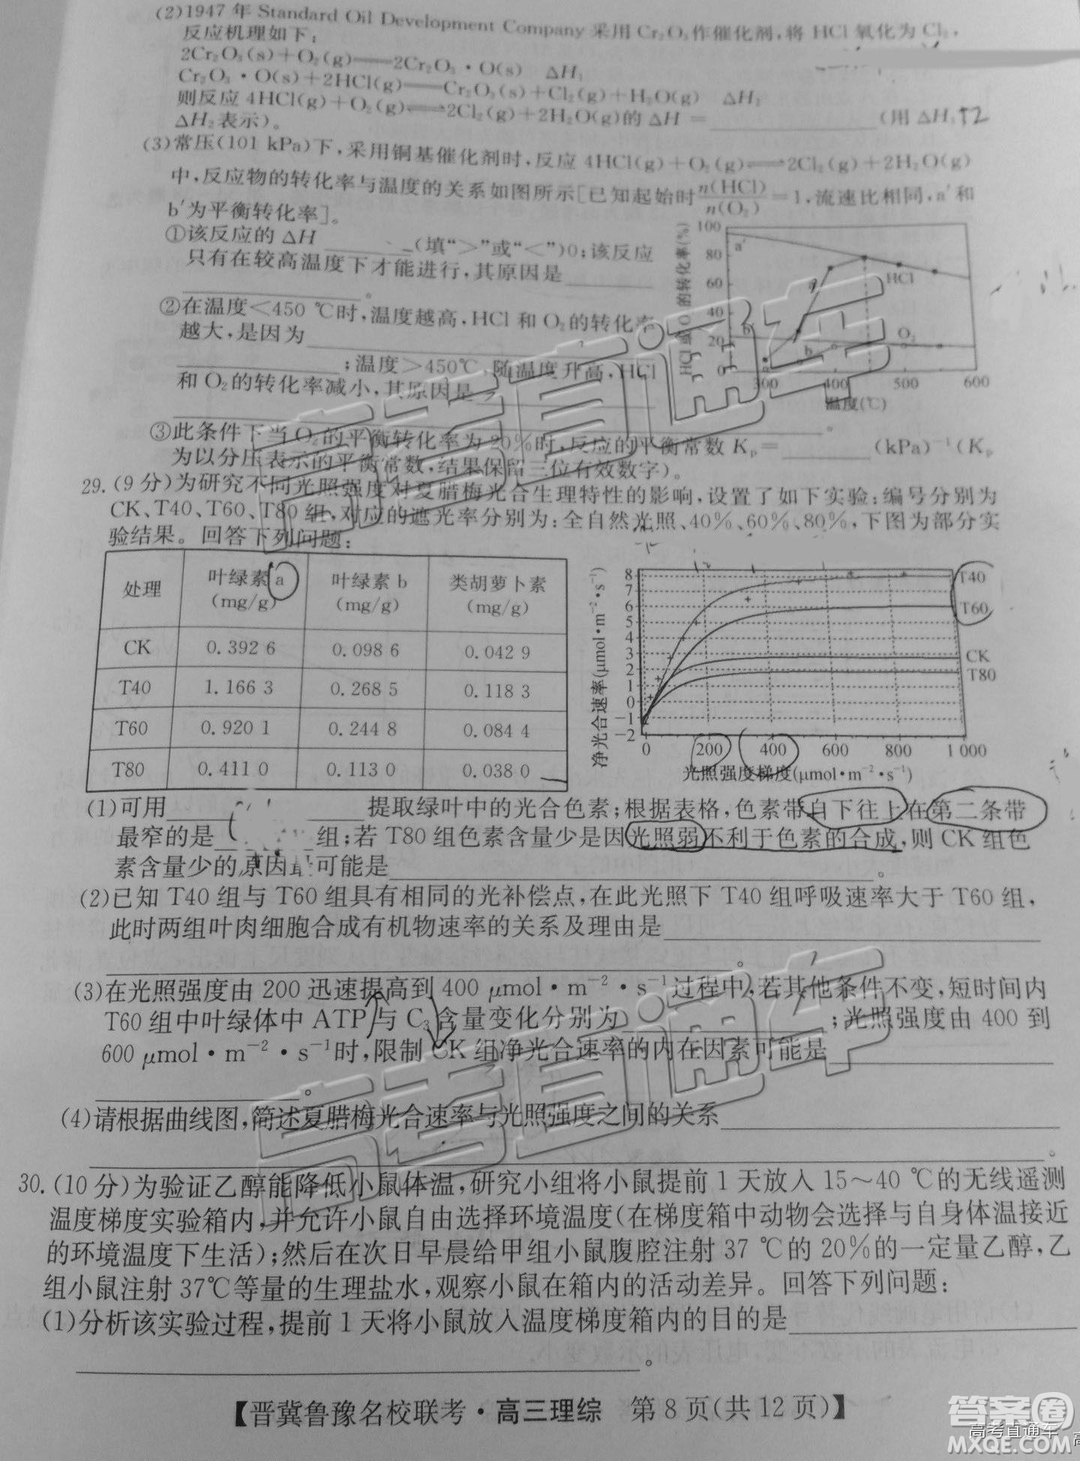 (2)1947 年 Standard Oil Development Company 采用 Cr₂O₃作催化剂,将 HCl 氧化为 Cl₂,
反应机理如下:
2Cr₂O₃(s)+O₂(g)——2Cr₂O₃·O(s) ΔH₁
Cr₂O₃·O(s)+2HCl(g)——Cr₂O₃(s)+Cl₂(g)+H₂O(g) ΔH₂
则反应 4HCl(g)+O₂(g)⇌2Cl₂(g)+2H₂O(g)的 ΔH = ______(用 ΔH₁
ΔH₂表示)。
(3)常压(101 kPa)下,采用铜基催化剂时,反应 4HCl(g)+O₂(g)⇌2Cl₂(g)+2H₂O(g)
中,反应物的转化率与温度的关系如图所示[已知起始时n(HCl)/n(O₂)=1,流速比相同,a′和
b′为平衡转化率]。
①该反应的 ΔH ______(填“>”或“<”)0;该反应
只有在较高温度下才能进行,其原因是______
______。
②在温度<450 ℃时,温度越高,HCl 和 O₂的转化率
越大,是因为______
______;温度>450℃,随温度升高,HCl
和 O₂的转化率减小,其原因是______
______。
100
80
60
40
20
0
300
400
500
600
温度(℃)
a′
a
b
HCl
O₂
③此条件下当 O₂的平衡转化率为 20%时,反应的平衡常数 Kₚ=______(kPa)⁻¹(Kₚ
为以分压表示的平衡常数,结果保留三位有效数字)。
29.(9 分)为研究不同光照强度对夏腊梅光合生理特性的影响,设置了如下实验:编号分别为
CK、T40、T60、T80 组,对应的遮光率分别为:全自然光照、40%、60%、80%,下图为部分实
验结果。回答下列问题:
处理 叶绿素 a (mg/g) 叶绿素 b (mg/g) 类胡萝卜素 (mg/g)
CK 0.392 6 0.098 6 0.042 9
T40 1.166 3 0.268 5 0.118 3
T60 0.920 1 0.244 8 0.084 4
T80 0.411 0 0.113 0 0.038 0
净光合速率(μmol·m⁻²·s⁻¹)
8
7
6
5
4
3
2
1
0
−1
−2
T40
T60
CK
T80
0 200 400 600 800 1 000
光照强度梯度(μmol·m⁻²·s⁻¹)
(1)可用______提取绿叶中的光合色素;根据表格,色素带自下往上在第二条带
最窄的是______组;若 T80 组色素含量少是因光照弱不利于色素的合成,则 CK 组色
素含量少的原因最可能是______。
(2)已知 T40 组与 T60 组具有相同的光补偿点,在此光照下 T40 组呼吸速率大于 T60 组,
此时两组叶肉细胞合成有机物速率的关系及理由是______
______。
(3)在光照强度由 200 迅速提高到 400 μmol·m⁻²·s⁻¹过程中,若其他条件不变,短时间内
T60 组中叶绿体中 ATP 与 C₃含量变化分别为______;光照强度由 400 到
600 μmol·m⁻²·s⁻¹时,限制 CK 组净光合速率的内在因素可能是______
______。
(4)请根据曲线图,简述夏腊梅光合速率与光照强度之间的关系______
______。
30.(10 分)为验证乙醇能降低小鼠体温,研究小组将小鼠提前 1 天放入 15～40 ℃的无线遥测
温度梯度实验箱内,并允许小鼠自由选择环境温度(在梯度箱中动物会选择与自身体温接近
的环境温度下生活);然后在次日早晨给甲组小鼠腹腔注射 37 ℃的 20%的一定量乙醇,乙
组小鼠注射 37℃等量的生理盐水,观察小鼠在箱内的活动差异。回答下列问题:
(1)分析该实验过程,提前 1 天将小鼠放入温度梯度箱内的目的是______
______。
【晋冀鲁豫名校联考·高三理综 第 8 页(共 12 页)】
高考直通车
高考直通车
答案圈
高考直通车
MXQE.COM